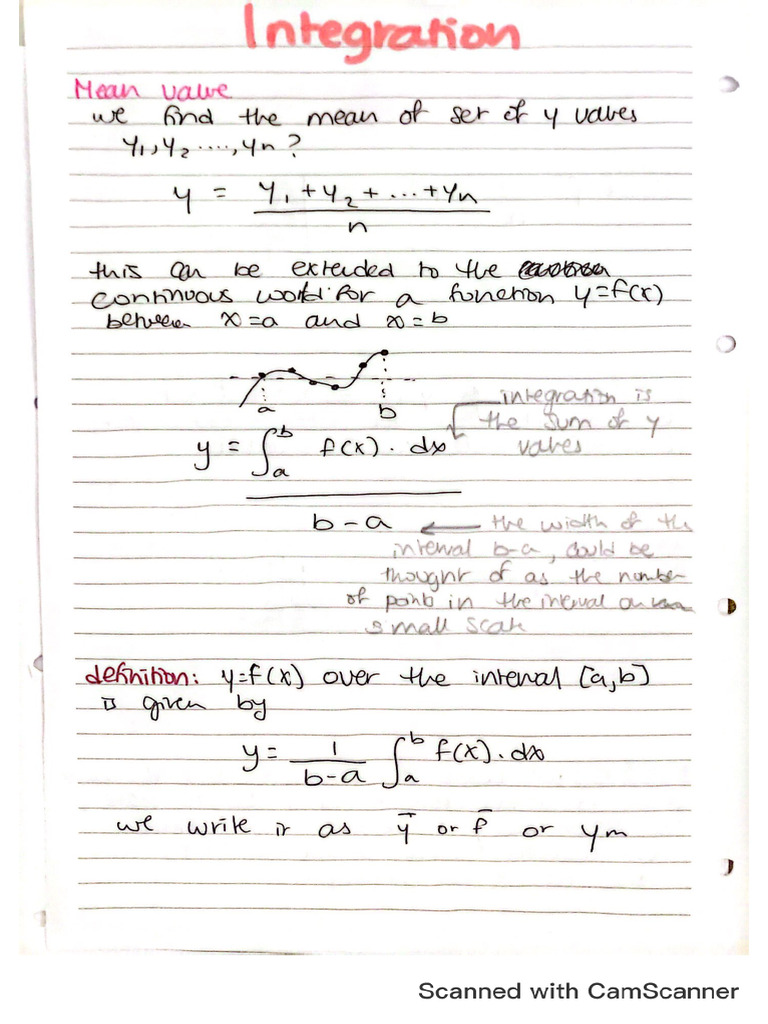 Integration
Mean value
we find the mean of set of y values
y₁, y₂ ...., yn?
y = y₁ + y₂ + ... + yn
n
this can be extended to the
continuous world for a function y=f(x)
between x=a and x=b
a b
integration is
the sum of y
values
y = ∫ₐᵇ f(x) . dx
b-a ← the width of the
interval b-a, could be
thought of as the number
of points in the interval on
small scale
definition: y=f(x) over the interval [a,b]
is given by
y= 1/(b-a) ∫ₐᵇ f(x). dx
we write it as ȳ or f̄ or ym
Scanned with CamScanner